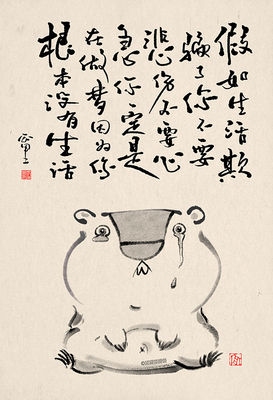 假如生活欺
骗了你不要
悲伤不要心
急你一定是
在做梦因为你
根本没有生活